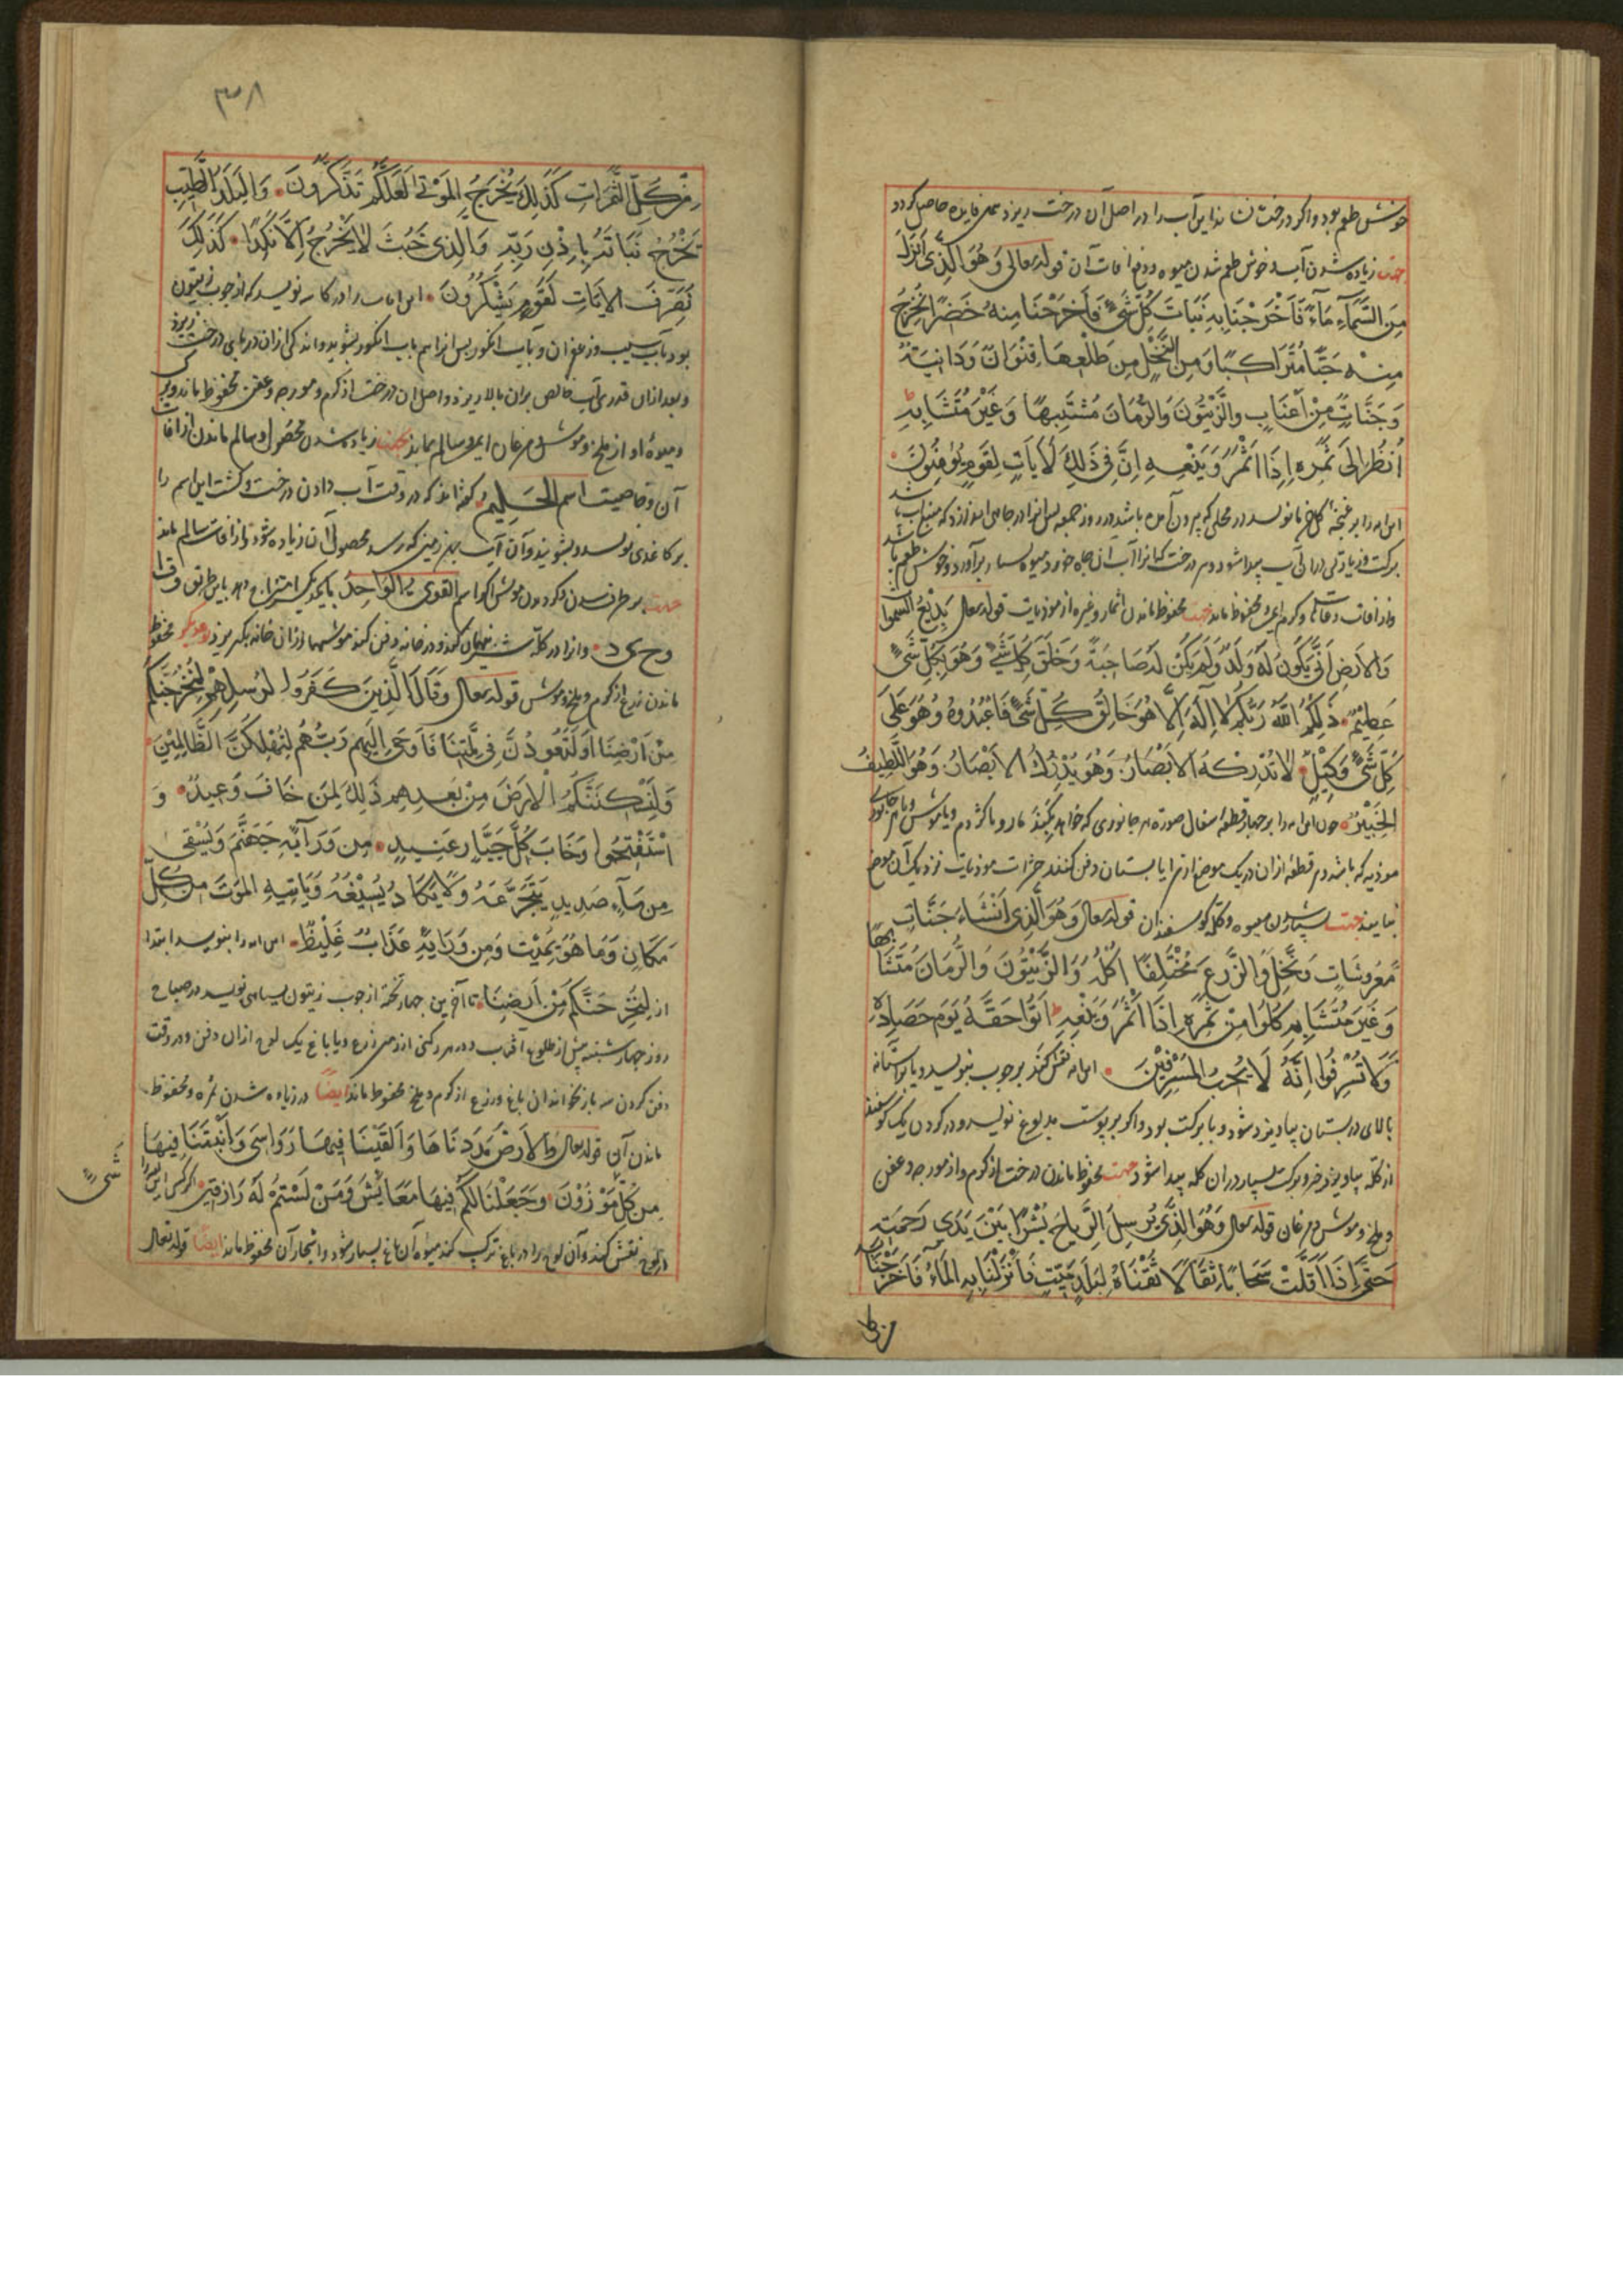 خوش طعم بود و اکر درخت نشاند این آب را در اصل آن درخت ریزد همان فایده حاصل کردد
جهت زیاده شدن آب و خوش طعم شدن میوه و دفع افات آن قوله تعالی وَهُوَ الَّذِی اَنْزَلَ
مِنَ السَّمَآءِ مَآءً فَاَخْرَجْنَا بِهِ نَبَاتَ کُلِّ شَیْءٍ فَاَخْرَجْنَا مِنْهُ خَضِرًا نُخْرِجُ
مِنْهُ حَبًّا مُتَرَاکِبًا وَمِنَ النَّخْلِ مِنْ طَلْعِهَا قِنْوَانٌ وَدَانِیَةٌ
وَجَنَّاتٍ مِنْ اَعْنَابٍ والزَّیْتُونَ وَالرُّمَانَ مُشْتَبِهًا وَغَیْرَ مُتَشَابِهٍ
اُنْظُرُ الیَ ثَمَرِهِ اِذَا اَثْمَرَ وَیَنْعِهِ اِنَّ فِی ذَلِکَ لَاٰیَاتٍ لِقَوْمٍ یُؤْمِنُونَ
این ایه را بر غنچه نویسد در محلی که بیرون آمده باشد در روز جمعه پس انرا در چاهی اندازد که
برکت و زیادتی در ان آب پیدا شود و هر درخت کیانرا آب ان چاه خورد میوه بسیار برآورد و خوش طعم باشد
و از افات و کرم ایمن محفوظ ماند جهت محفوظ ماندن اثمار و غیره از موذیات قوله تعالی بَدِیْعُ السَّمٰوَاتِ
وَالاَرْضِ اَنَّی یَکُونُ لَهُ وَلَدٌ وَلَمْ یَکُنْ لَهُ صَاحِبَةٌ وَخَلَقَ کُلَّ شَیْءٍ وَهُوَ بِکُلِّ شَیْءٍ
عَلِیْمٌ ذَلِکُمُ اللّٰهُ رَبُّکُمْ لَا اِلٰهَ اِلَّا هُوَ خَالِقُ کُلِّ شَیْءٍ فَاعْبُدُوهُ وَهُوَ عَلَی
کُلِّ شَیْءٍ وَکِیْلٌ لَا تُدْرِکُهُ الاَبْصَارُ وَهُوَ یُدْرِکُ الاَبْصَارَ وَهُوَ اللَّطِیفُ
الخَبِیْرُ چون این ایه را بر چهار قطعه سفال صورة هر جانوری که خواهد بکنند مار و یا کژدم و یا موش و یا هر جانوری
موذیه که باشد و هر قطعه ازان در یک موضع از سرا یا بستان دفن کنند حشرات موذیات نزدیک آن موضع
نیایند جهت بسیار شدن میوه و کله کوسفندان قوله تعالی وَهُوَ الَّذِی اَنْشَاءَ جَنَّاتٍ
مَعْرُوشَاتٍ وَنَخْلَ وَالزَّرْعَ مُخْتَلِفًا اُکُلُهُ وَالزَّیْتُونَ وَالرُّمَانَ مُتَشَابِهًا
وَغَیْرَ مُتَشَابِهٍ کُلُوا مِنْ ثَمَرِهِ اِذَا اَثْمَرَ وَیَنْعِهِ اٰتُوا حَقَّهُ یَوْمَ حَصَادِهِ
وَلَا تُسْرِفُوا اِنَّهُ لَا یُحِبُّ المُسْرِفِیْنَ این ایه نقش کند بر چوب بنویسد و یا بر آستانه
بالای در بستان بیاویزد شود و با برکت بود و اکر بر پوست بدبوغ نویسد و در کردن یک کوسفند
از کله بیاویزد و برکت بسیار در ان کله پیدا شود جهت محفوظ ماندن درخت از کرم و از مورچه و عفن
و ملخ و موش و مرغان قوله تعالی وَهُوَ الَّذِی یُرْسِلُ الرِّیَاحَ بُشْرًا بَیْنَ یَدَی رَحْمَتِهِ
حَتَّی اِذَا اَقَلَّتْ سَحَابًا ثِقَالًا سُقْنَاهُ لِبَلَدٍ مَیِّتٍ فَاَنْزَلْنَا بِهِ المَاءَ فَاَخْرَجْنَا بِهِ
٣٨
مِنْ کُلِّ الثَّمَرَاتِ کَذٰلِکَ یُخْرِجُ المَوْتٰی لَعَلَّکُمْ تَذَکَّرُونَ وَالبَلَدُ الطَّیِّبُ
یَخْرُجُ نَبَاتُهُ بِاِذْنِ رَبِّهِ وَالَّذِی خَبُثَ لَا یَخْرُجُ اِلَّا نَکِدًا کَذٰلِکَ
نُصَرِّفُ الاٰیَاتِ لِقَوْمٍ یَشْکُرُونَ این ایات را در کاسه نویسد که از چوب زیتون
بود بآب سیب و زعفران و بآب انکور پس انرا هم بآب انکور بشوید و اندکی ازان در پای درخت ریزد
و بعد ازان قدری آب خالص بران بالا ریزد و اصل ان درخت از کرم و مورچه و عفن محفوظ ماند
و میوهٔ او از ملخ و موش و مرغان ایمن و سالم بماند جهت زیاده شدن محصول و سالم ماندن از افات
آن وخاصیت اسم الحَلِیم کفته‌اند که در وقت آب دادن درخت و کشت این اسم را
بر کاغذی نویسد و بشویند و آن آب بهر زمینی که رسد محصول آن زیاده شود و از افات سالم ماند
جهت بر طرف شدن و موش اکر اسم القوی با الوَاحِدُ بایکدیکر امتزاج دهد باین طریق و ق ا
و ح ی د و انرا در کلّه نهان کند و در خانه دفن کند موشها از ان خانه بکریزد جهت محفوظ
ماندن زرع از کرم و ملخ و موش قوله تعالی وَقَالَ الَّذِینَ کَفَرُوا لِرُسُلِهِمْ لَنُخْرِجَنَّکُمْ
مِنْ اَرْضِنَا اَوْ لَتَعُودُنَّ فِی مِلَّتِنَا فَاَوْحٰی اِلَیْهِمْ رَبُّهُمْ لَنُهْلِکَنَّ الظَّالِمِیْنَ
وَلَنُسْکِنَنَّکُمُ الْاَرْضَ مِنْ بَعْدِهِمْ ذٰلِکَ لِمَنْ خَافَ وَعِیدِ وَ
اسْتَفْتَحُوا وَخَابَ کُلُّ جَبَّارٍ عَنِیدٍ مِنْ وَرَآیِهِ جَهَنَّمَ وَیُسْقٰی
مِنْ مَآءٍ صَدِیدٍ یَتَجَرَّعُهُ وَلَا یَکَادُ یُسِیْغُهُ وَیَاتِیهِ المَوْتُ مِنْ کُلِّ
مَکَانٍ وَمَا هُوَ بِمَیِّتٍ وَمِنْ وَرَایِهِ عَذَابٌ غَلِیظٌ این ایه را بنویسد ابتدا
از لنُخْرِجَنَّکُمْ مِنْ اَرْضِنَا تا آخر بر چهار تخته از چوب زیتون بسیاهی نویسد در صباح
روز چهارشنبه پیش از طلوع افتاب و در هر رکنی از زمین زرع و یا باغ یک لوح ازان دفن و در وقت
دفن کردن سه بار بخواند ان باغ و زرع از کرم و ملخ محفوظ ماند ایضاً در زیاده شدن ثمره و محفوظ
ماندن آن قوله تعالی وَالاَرْضَ مَدَدْنَاهَا وَاَلْقَیْنَا فِیهَا رَوَاسِیَ وَاَنْبَتْنَا فِیهَا
مِنْ کُلِّ شَیْءٍ مَوْزُوْنٍ وَجَعَلْنَا لَکُمْ فِیهَا مَعَایِشَ وَمَنْ لَسْتُمْ لَهُ بِرَازِقِیْنَ اکر کسی این ایه را
در لوح نقش کند و آن لوح را در باغ ترکیب کند میوه آن باغ بسیار شود و اشجار آن محفوظ ماند ایضاً قوله تعالی